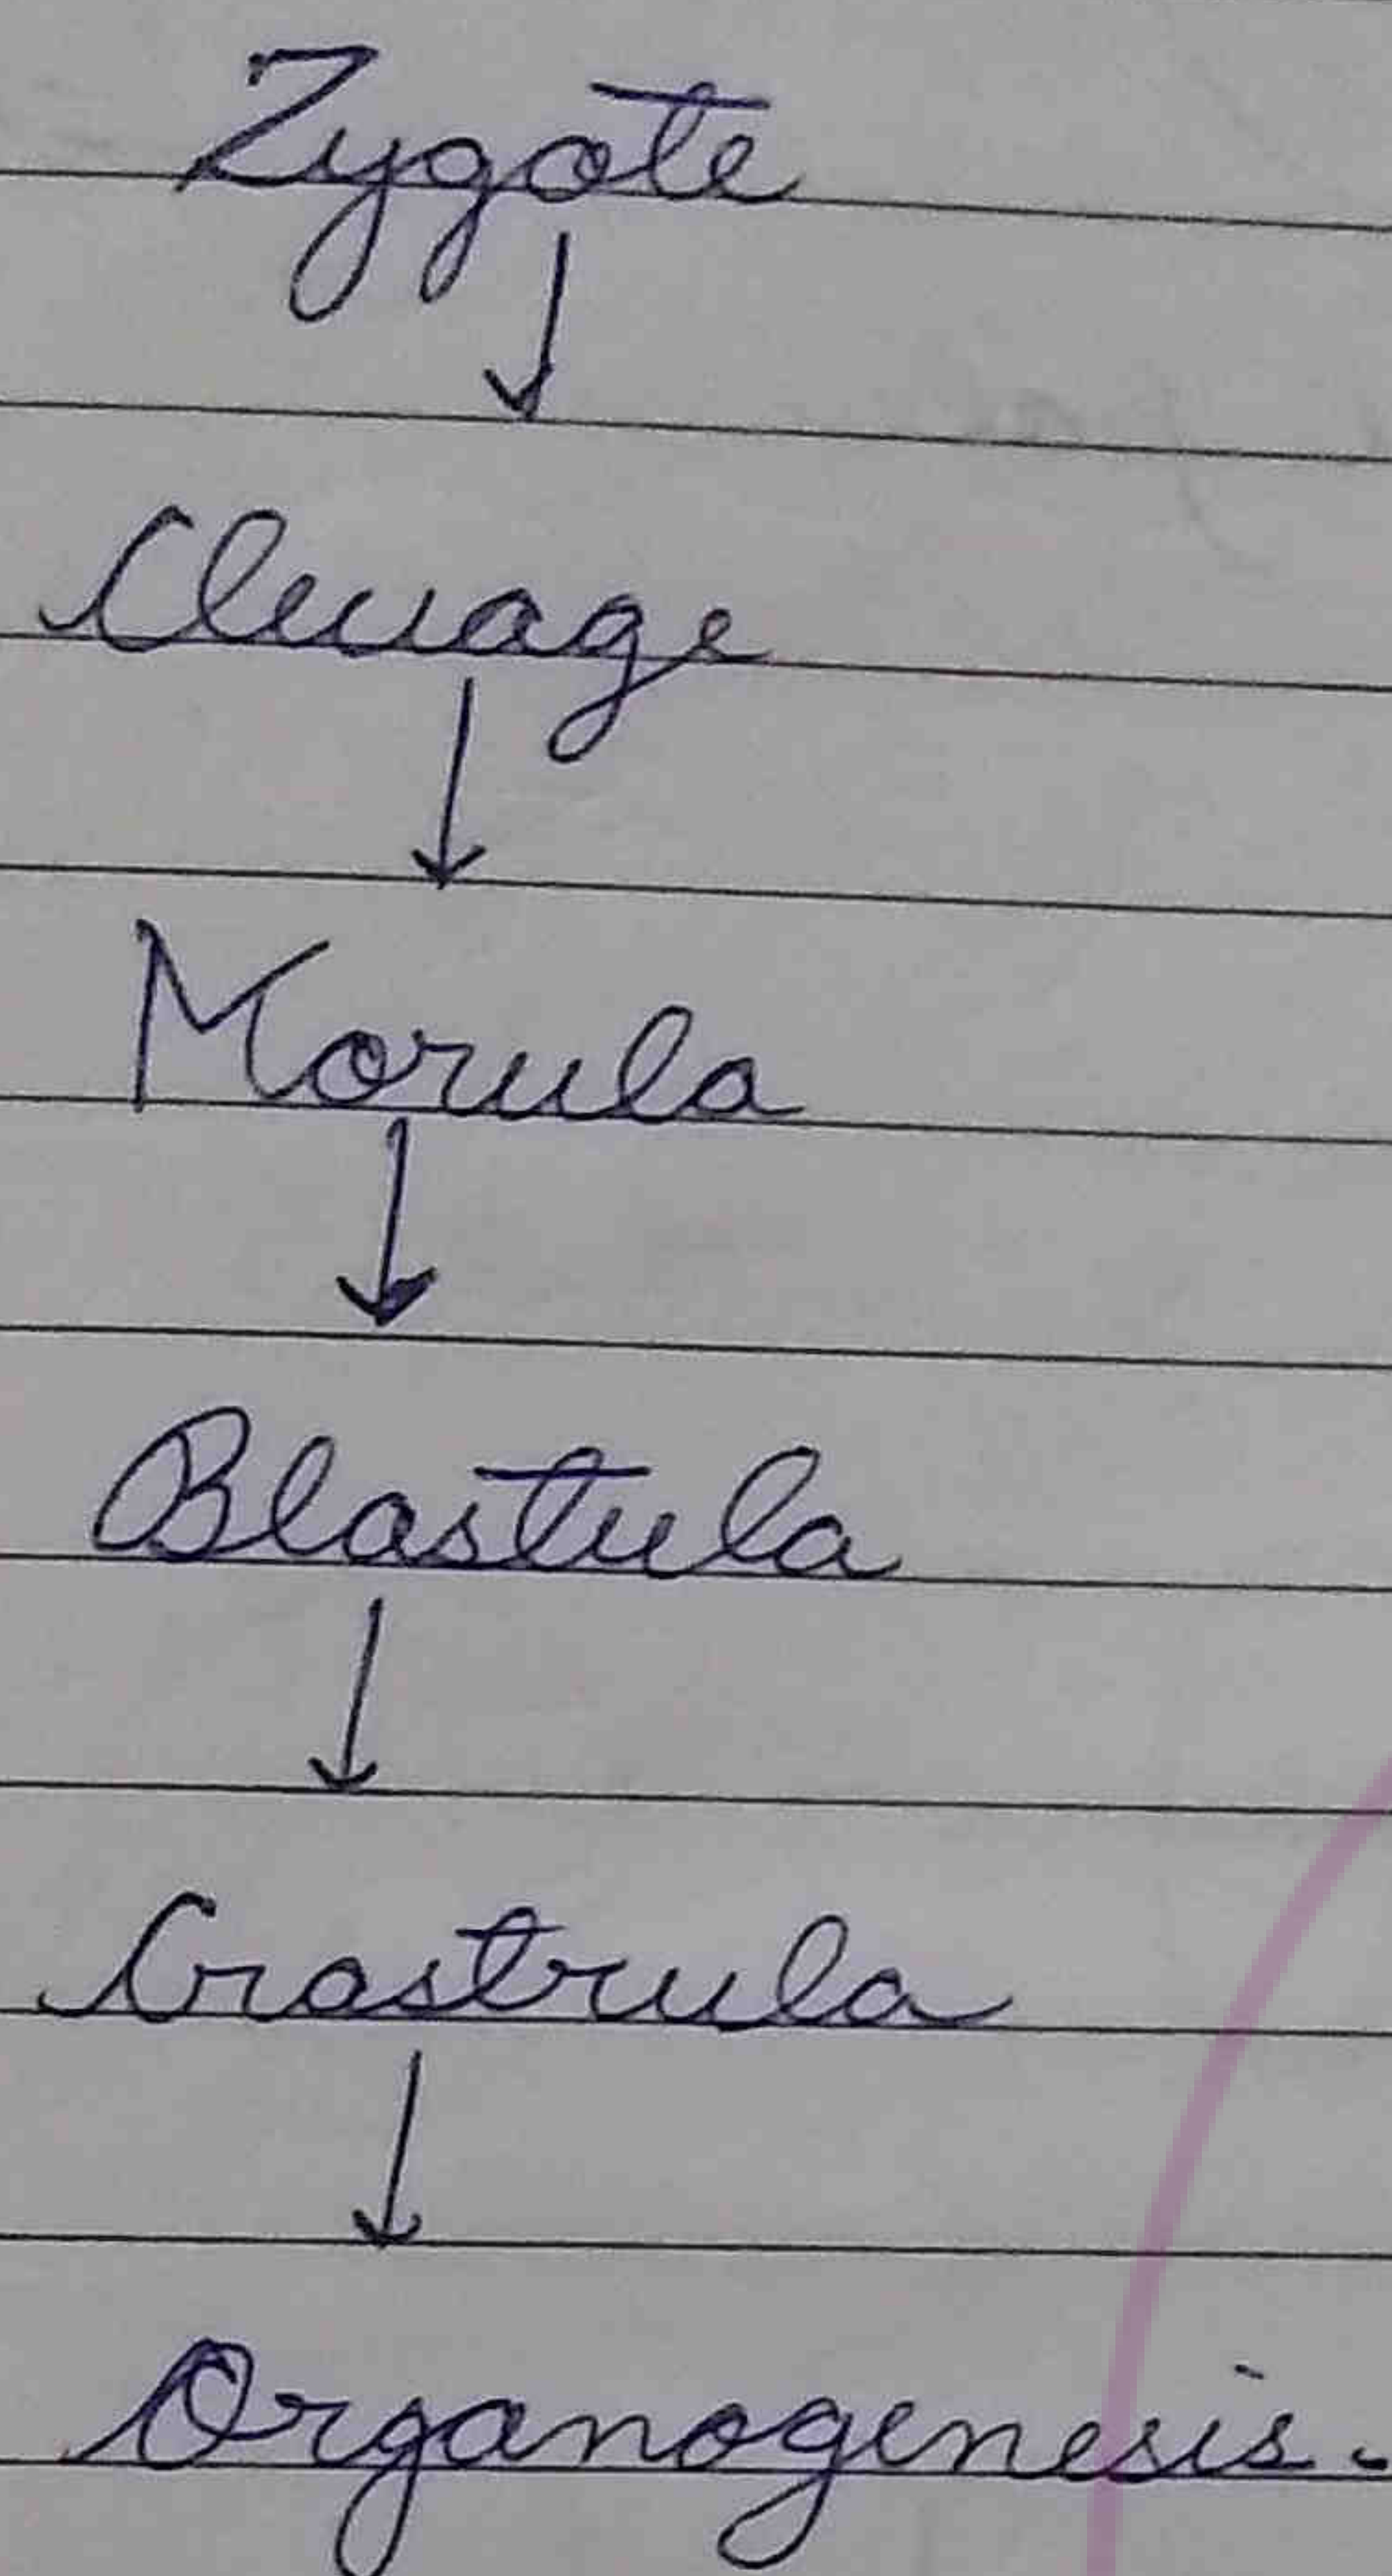 Zygote
↓
Clevage
↓
Morula
↓
Blastula
↓
Crastrula
↓
Organogenesis.